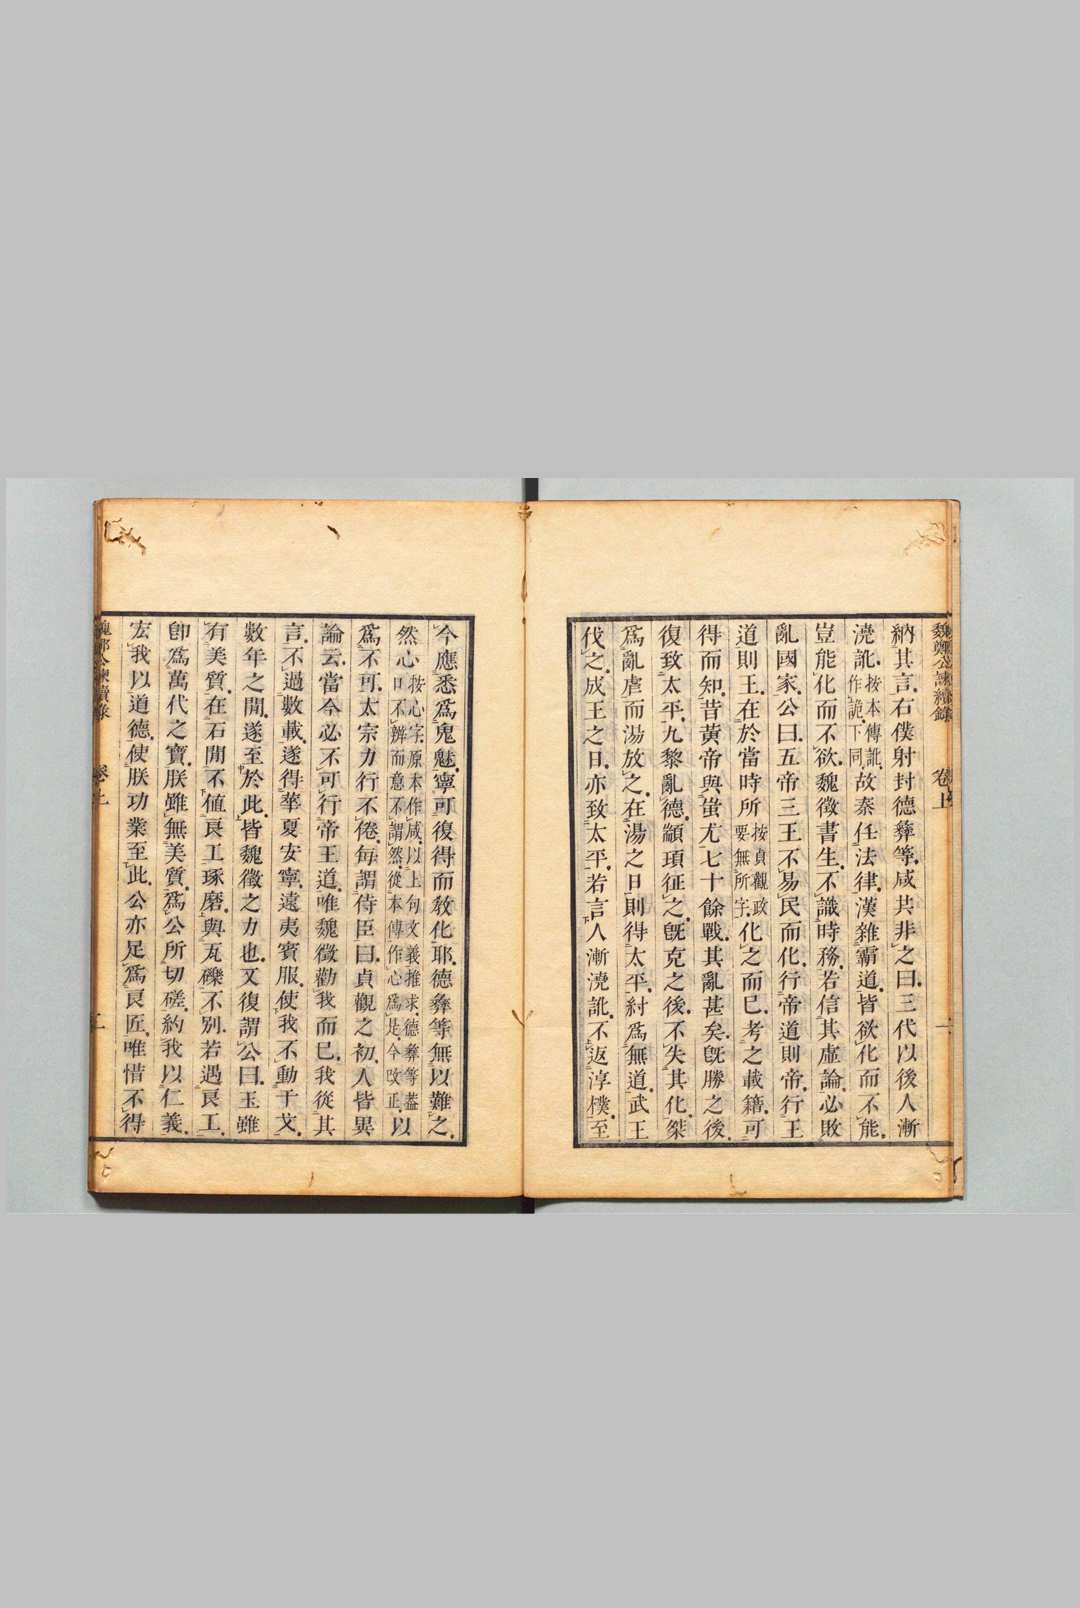 魏鄭公諫續錄 卷上 二
納其言右僕射封德彝等咸共非之曰三代以後人漸
澆訛按本傳訛作詭下同故秦任法律漢雜霸道皆欲化而不能
豈能化而不欲魏徵書生不識時務若信其虛論必敗
亂國家公曰五帝三王不易民而化行帝道則帝行王
道則王在於當時所按貞觀政要無所字化之而已考之載籍可
得而知昔黃帝與蚩尤七十餘戰其亂甚矣旣勝之後
復致太平九黎亂德顓頊征之旣克之後不失其化桀
爲亂虐而湯放之在湯之日則得太平紂爲無道武王
伐之成王之日亦致太平若言人漸澆訛不返淳樸至
今應悉爲鬼魅寧可復得而敎化耶德彝等無以難之
然心按心字原本作咸以上句文義推求德彝等葢心口不辨而意不謂然從本傳作心爲是今改正以
爲不可太宗力行不倦每謂侍臣曰貞觀之初人皆異
論云當今必不可行帝王道唯魏徵勸我而已我從其
言不過數載遂得華夏安寧遠夷賓服使我不動干戈
數年之閒遂至於此皆魏徵之力也又復謂公曰玉雖
有美質在石閒不値良工琢磨與瓦礫不別若遇良工
卽爲萬代之寶朕雖無美質爲公所切磋約我以仁義
宏我以道德使朕功業至此公亦足爲良匠唯惜不得
魏鄭公諫續錄 卷上 二